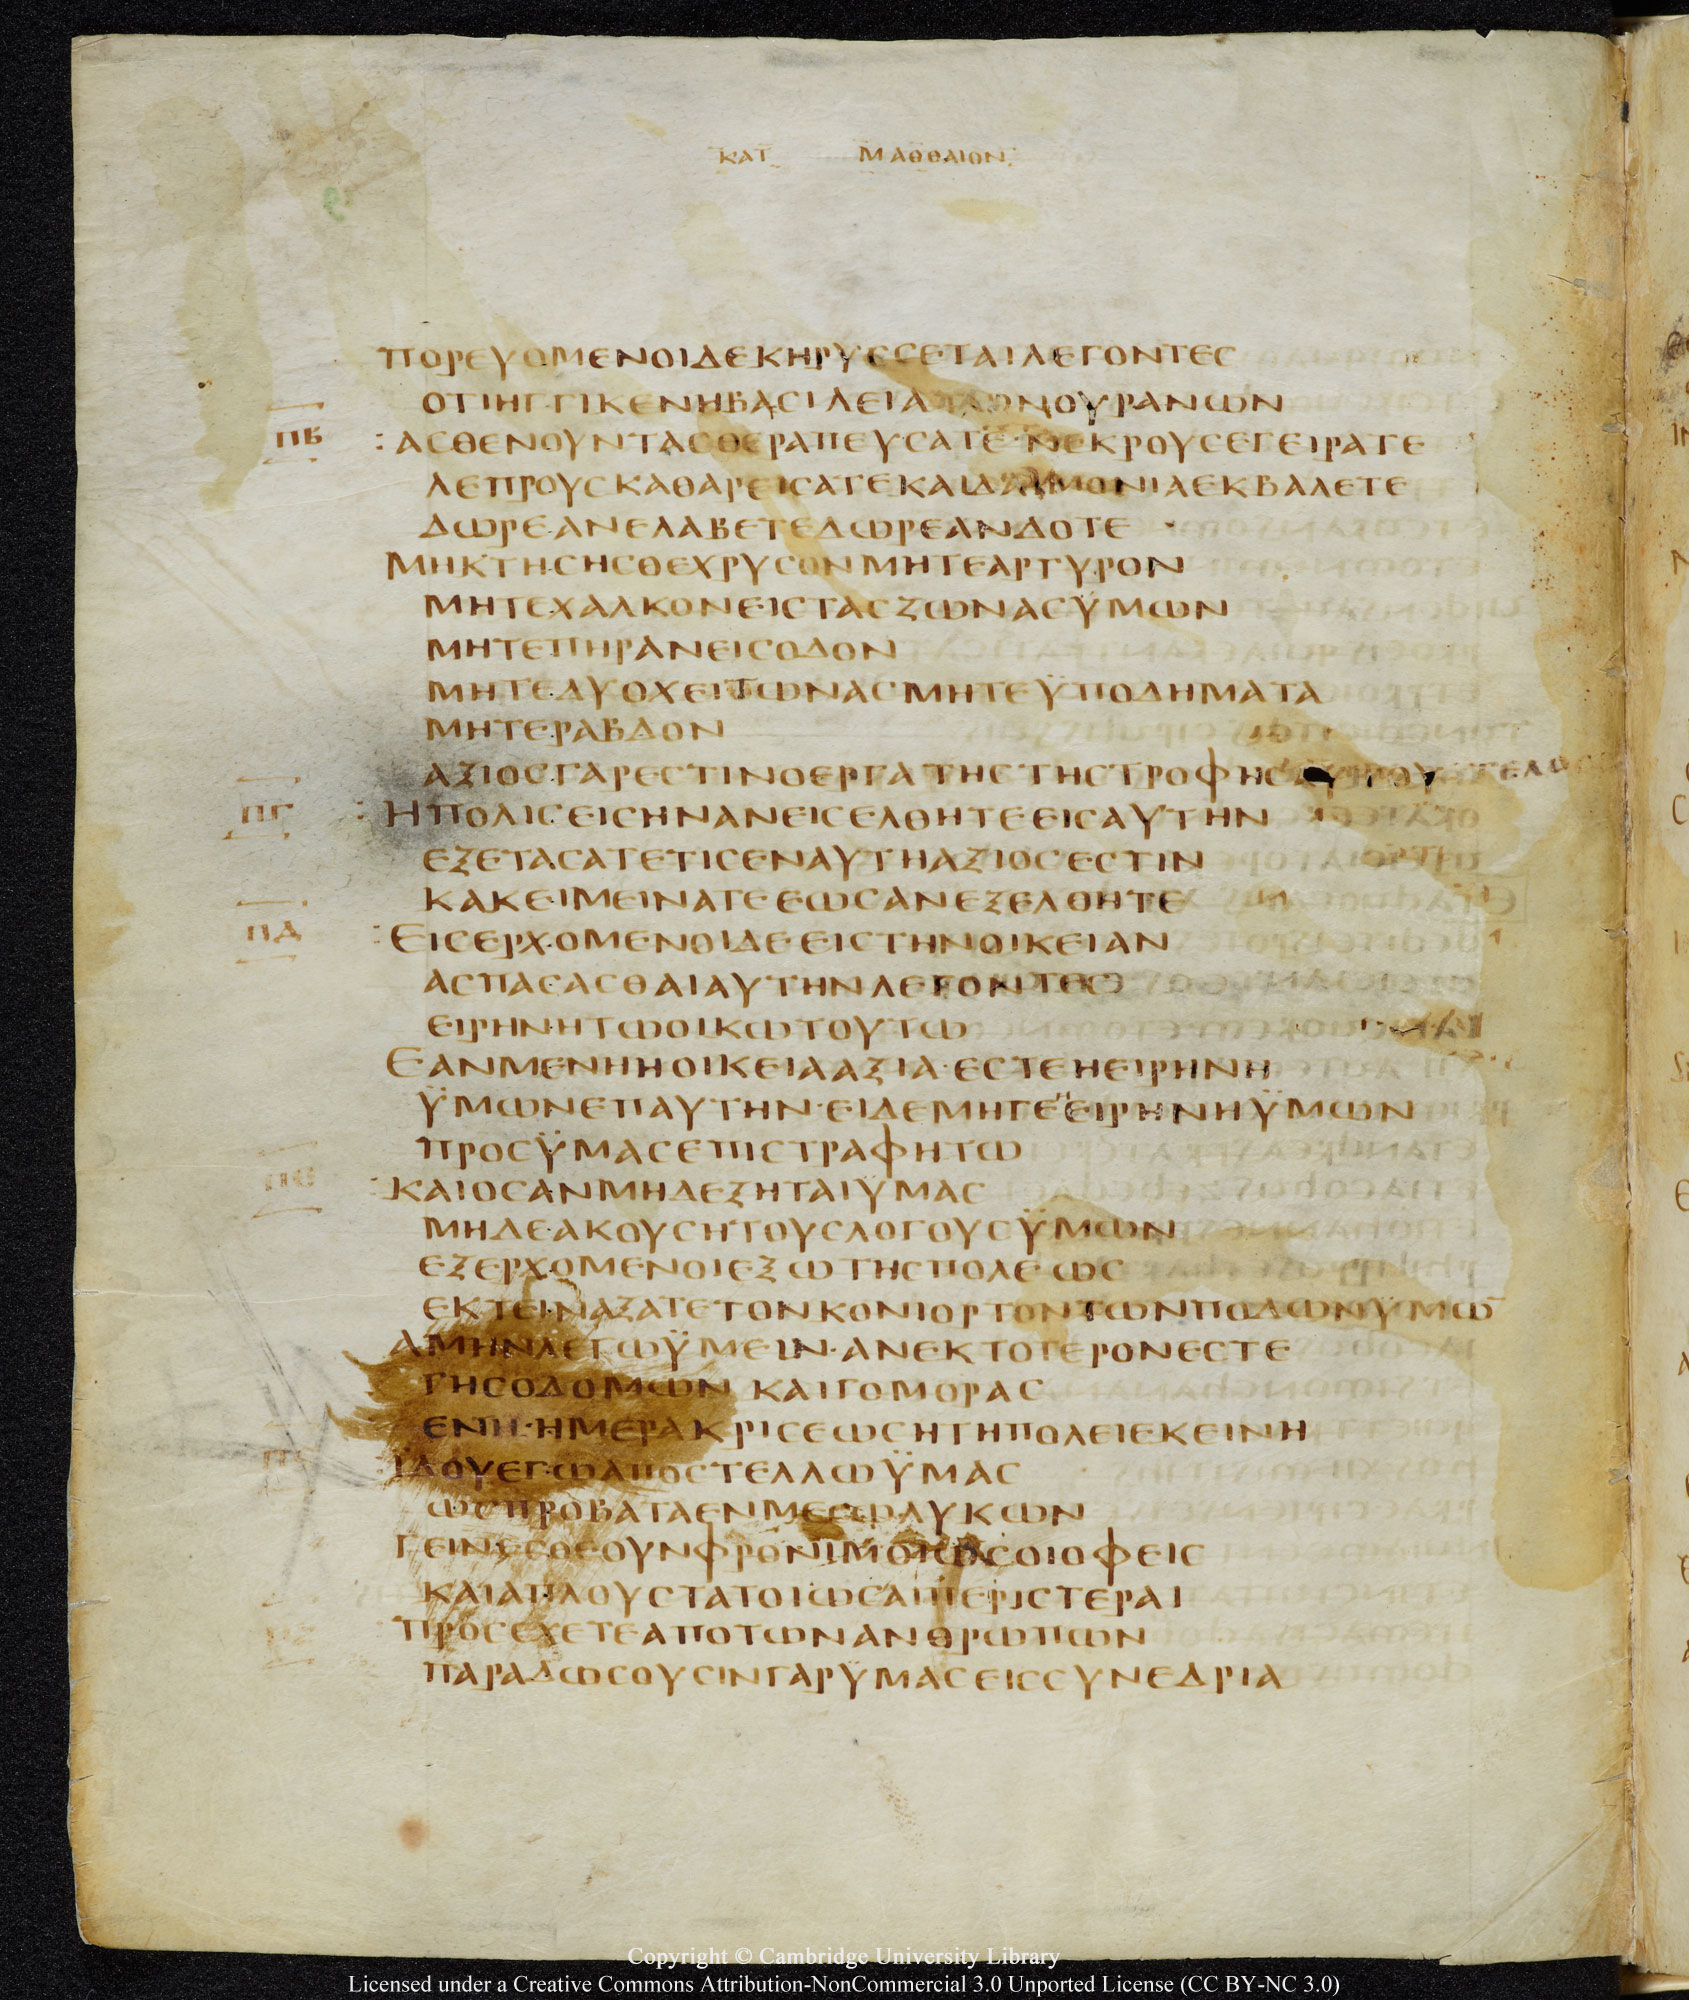 ΚΑΤ ΜΑΘΘΑΙΟΝ
ΠΟΡΕΥΟΜΕΝΟΙΔΕΚΗΡΥϹϹΕΤΑΙΛΕΓΟΝΤΕϹ
ΟΤΙΗΓΓΙΚΕΝΗΒΑϹΙΛΕΙΑΤΩΝΟΥΡΑΝΩΝ
ΠΒ :ΑϹΘΕΝΟΥΝΤΑϹΘΕΡΑΠΕΥϹΑΤΕ·ΝΕΚΡΟΥϹΕΓΕΙΡΑΤΕ
ΛΕΠΡΟΥϹΚΑΘΑΡΕΙϹΑΤΕΚΑΙΔΑΙΜΟΝΙΑΕΚΒΑΛΕΤΕ
ΔΩΡΕΑΝΕΛΑΒΕΤΕΔΩΡΕΑΝΔΟΤΕ
ΜΗΚΤΗϹΗϹΘΕΧΡΥϹΟΝΜΗΤΕΑΡΓΥΡΟΝ
ΜΗΤΕΧΑΛΚΟΝΕΙϹΤΑϹΖΩΝΑϹΫΜΩΝ
ΜΗΤΕΠΗΡΑΝΕΙϹΟΔΟΝ
ΜΗΤΕΔΥΟΧΕΙΤΩΝΑϹΜΗΤΕΫΠΟΔΗΜΑΤΑ
ΜΗΤΕΡΑΒΔΟΝ
ΑΞΙΟϹΓΑΡΕϹΤΙΝΟΕΡΓΑΤΗϹΤΗϹΤΡΟΦΗϹΑΥΤΟΥ
ΠΓ :ΗΠΟΛΙϹΕΙϹΗΝΑΝΕΙϹΕΛΘΗΤΕΕΙϹΑΥΤΗΝ
ΕΞΕΤΑϹΑΤΕΤΙϹΕΝΑΥΤΗΑΞΙΟϹΕϹΤΙΝ
ΚΑΚΕΙΜΕΙΝΑΤΕΕΩϹΑΝΕΞΕΛΘΗΤΕ
ΠΔ :ΕΙϹΕΡΧΟΜΕΝΟΙΔΕΕΙϹΤΗΝΟΙΚΕΙΑΝ
ΑϹΠΑϹΑϹΘΑΙΑΥΤΗΝΛΕΓΟΝΤΕϹ
ΕΙΡΗΝΗΤΩΟΙΚΩΤΟΥΤΩ
ΕΑΝΜΕΝΗΗΟΙΚΕΙΑΑΞΙΑ·ΕϹΤΕΗΕΙΡΗΝΗ
ΫΜΩΝΕΠΑΥΤΗΝ·ΕΙΔΕΜΗΓΕΕΙΡΗΝΗΫΜΩΝ
ΠΡΟϹΫΜΑϹΕΠΙϹΤΡΑΦΗΤΩ
ΠΕ :ΚΑΙΟϹΑΝΜΗΔΕΞΗΤΑΙΫΜΑϹ
ΜΗΔΕΑΚΟΥϹΗΤΟΥϹΛΟΓΟΥϹΫΜΩΝ
ΕΞΕΡΧΟΜΕΝΟΙΕΞΩΤΗϹΠΟΛΕΩϹ
ΕΚΤΕΙΝΑΞΑΤΕΤΟΝΚΟΝΙΟΡΤΟΝΤΩΝΠΟΔΩΝΫΜΩ̅
ΑΜΗΝΛΕΓΩΫΜΕΙΝ·ΑΝΕΚΤΟΤΕΡΟΝΕϹΤΕ
ΓΗϹΟΔΟΜΩΝ ΚΑΙΓΟΜΟΡΑϹ
ΕΝΗΗΜΕΡΑΚΡΙϹΕΩϹΗΤΗΠΟΛΕΙΕΚΕΙΝΗ
:ΪΔΟΥΕΓΩΑΠΟϹΤΕΛΛΩΫΜΑϹ
ΩϹΠΡΟΒΑΤΑΕΝΜΕϹΩΛΥΚΩΝ
ΓΕΙΝΕϹΘΕΟΥΝΦΡΟΝΙΜΟΙΩϹΟΙΟΦΕΙϹ
ΚΑΙΑΠΛΟΥϹΤΑΤΟΙΩϹΑΙΠΕΡΙϹΤΕΡΑΙ
ΠΡΟϹΕΧΕΤΕΑΠΟΤΩΝΑΝΘΡΩΠΩΝ
ΠΑΡΑΔΩϹΟΥϹΙΝΓΑΡΫΜΑϹΕΙϹϹΥΝΕΔΡΙΑ
Copyright © Cambridge University Library
Licensed under a Creative Commons Attribution-NonCommercial 3.0 Unported License (CC BY-NC 3.0)